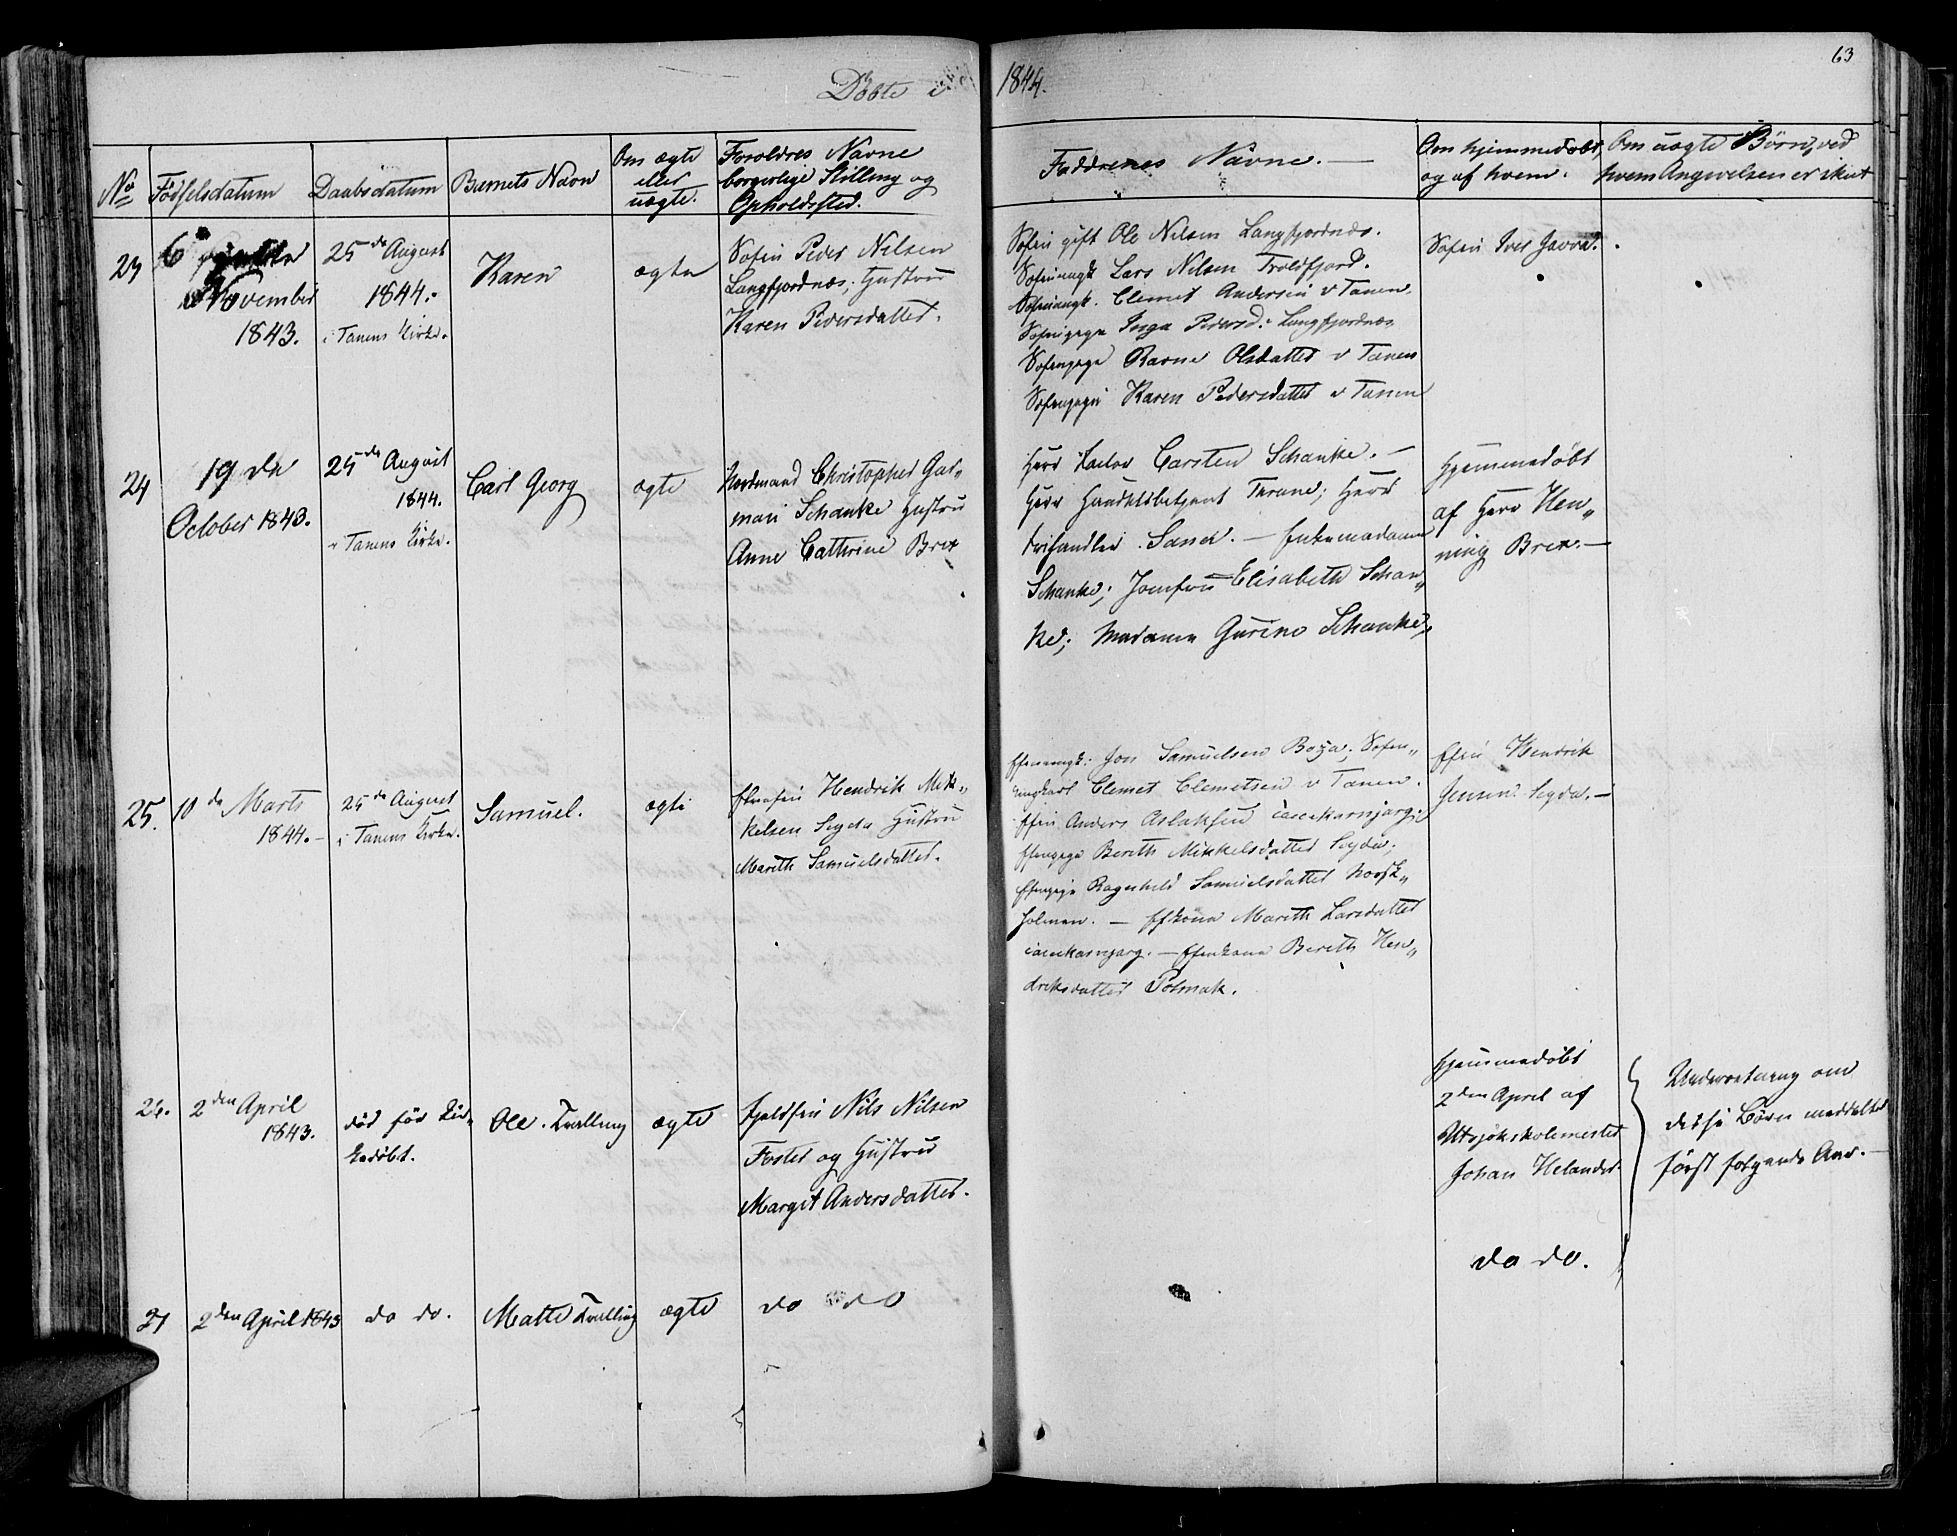 63
Döbte i 1844.
No
Födselsdatum
Daabsdatum
Barnets Navn
Om ægte
eller
uægte.
Foreldres Navne
borgerlige Stilling og
Opholdssted.
Faddrenes Navne. —
Om hjemmedøbt,
og af hvem.
Om uægte Börn, ved
hvem Angivelsen er skeet
23
6
November
1843.
25de August
1844.
i Tanens Kirke.
Karen
ægte
Søfin Peder Nilsen
Langfjordnæs; Hustru
Karen Pedersdatter.
Søfin gift Ole Nilsen Langfjordnæs.
Lars Nilsen Troldfjord.
Clemet Andersen v Tanen.
Søfinpige Inga Pedersd. Langfjordnæs
Søfinpige Ravne Olsdatter v Tanen
Søfinpige Karen Pedersdatter v Tanen
Søfin Iver
24
19 de
October 1843.
25de August
1844.
i Tanens Kirke.
Carl Georg
ægte
Nordmand Christopher Gad„
Schanke Hustru
Anne Cathrine Brex
Herr Carsten Schanke. —
Herr Handelsbetjent ; Herr
. — Enkemadame
Schanke; Jomfru Elisabeth Schan„
ke; Madame Gurine Schanke,
Hjemmedøbt
af Herr Hen„
ning Brex. —
25.
10de Marts
1844. –
25de August
i Tanens Kirke.
Samuel.
ægte
Hendrik Mik„
kelsen Segda Hustru
Mareth Samuelsdatter.
Jon Samuelsen ; Søfin„
ungkarl Clemet Clemetsen v Tanen.
Anders Aslaksen
Bereth Mikkelsdatter Segda;
Ragnhild Samuelsdatter Norsk„
holmen. — Mareth Larsdatter
— Bereth Hen„
driksdatter Polmak.
Hendrik
Jensen Segda. —
26.
2den April
1843.
død før Kir„
kedøbt.
Ole. Tvilling
ægte
Fjeldfin Nils Nilsen
Foster og Hustru
Margit Andersdatter.
Hjemmedøbt
2den April af
Utsjokskolemester
Johan Helander.
Underretning om
disse Börn meddeltes
først følgende Aar. —
27
2den April 1843
do do.
Matte Tvilling
ægte
do do
do do.